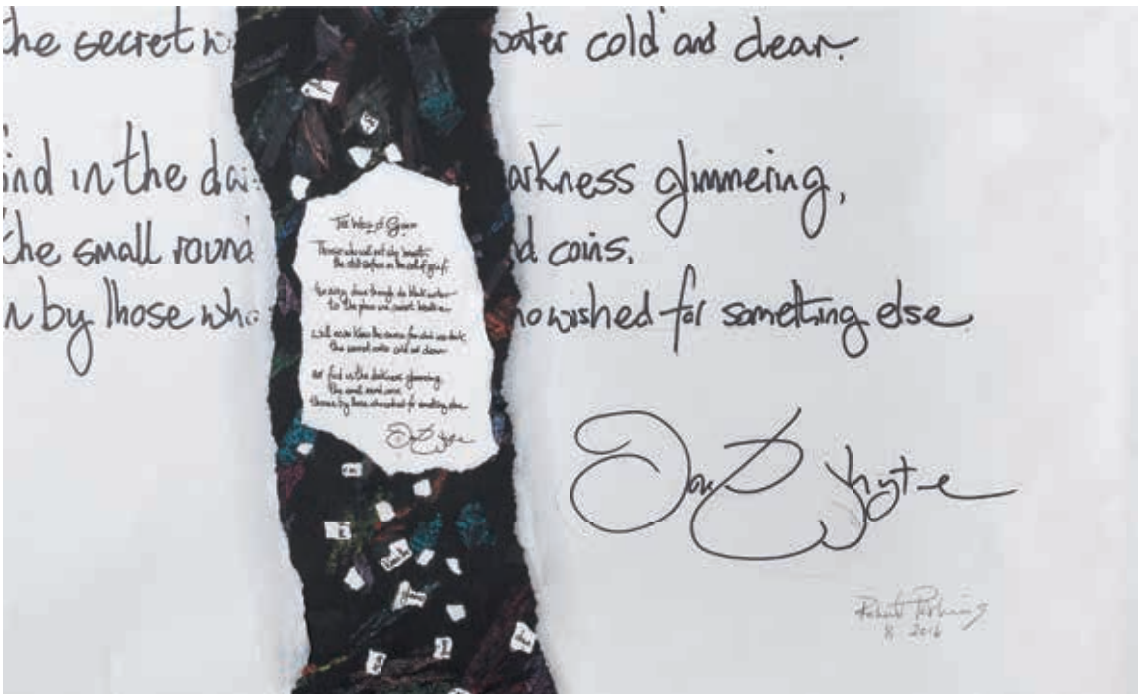 the secret w water cold and clear.
ind in the da arkness glimmering,
the small round d coins.
n by those who ho wished for something else
The Well of Grief
Those who will not slip beneath
the still surface on the well of grief
turning down through its black water
to the place we cannot breathe
will never know the source from which we drink
the secret water cold and clear
nor find in the darkness glimmering
the small round coins
thrown by those who wished for something else
David Whyte
David Whyte
Robert Perkins
8 2016